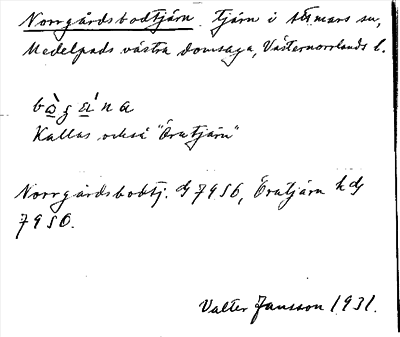 Norrgårdsbodtjärn. tjärn i Attmars sn,
Medelpads västra domsaga, Västernorrlands l.
Kallas också "Öratjärn"
Norrgårdsbodtj. Gj 7956, Öratjärn h dj
7956.
Valter Jansson 1931.